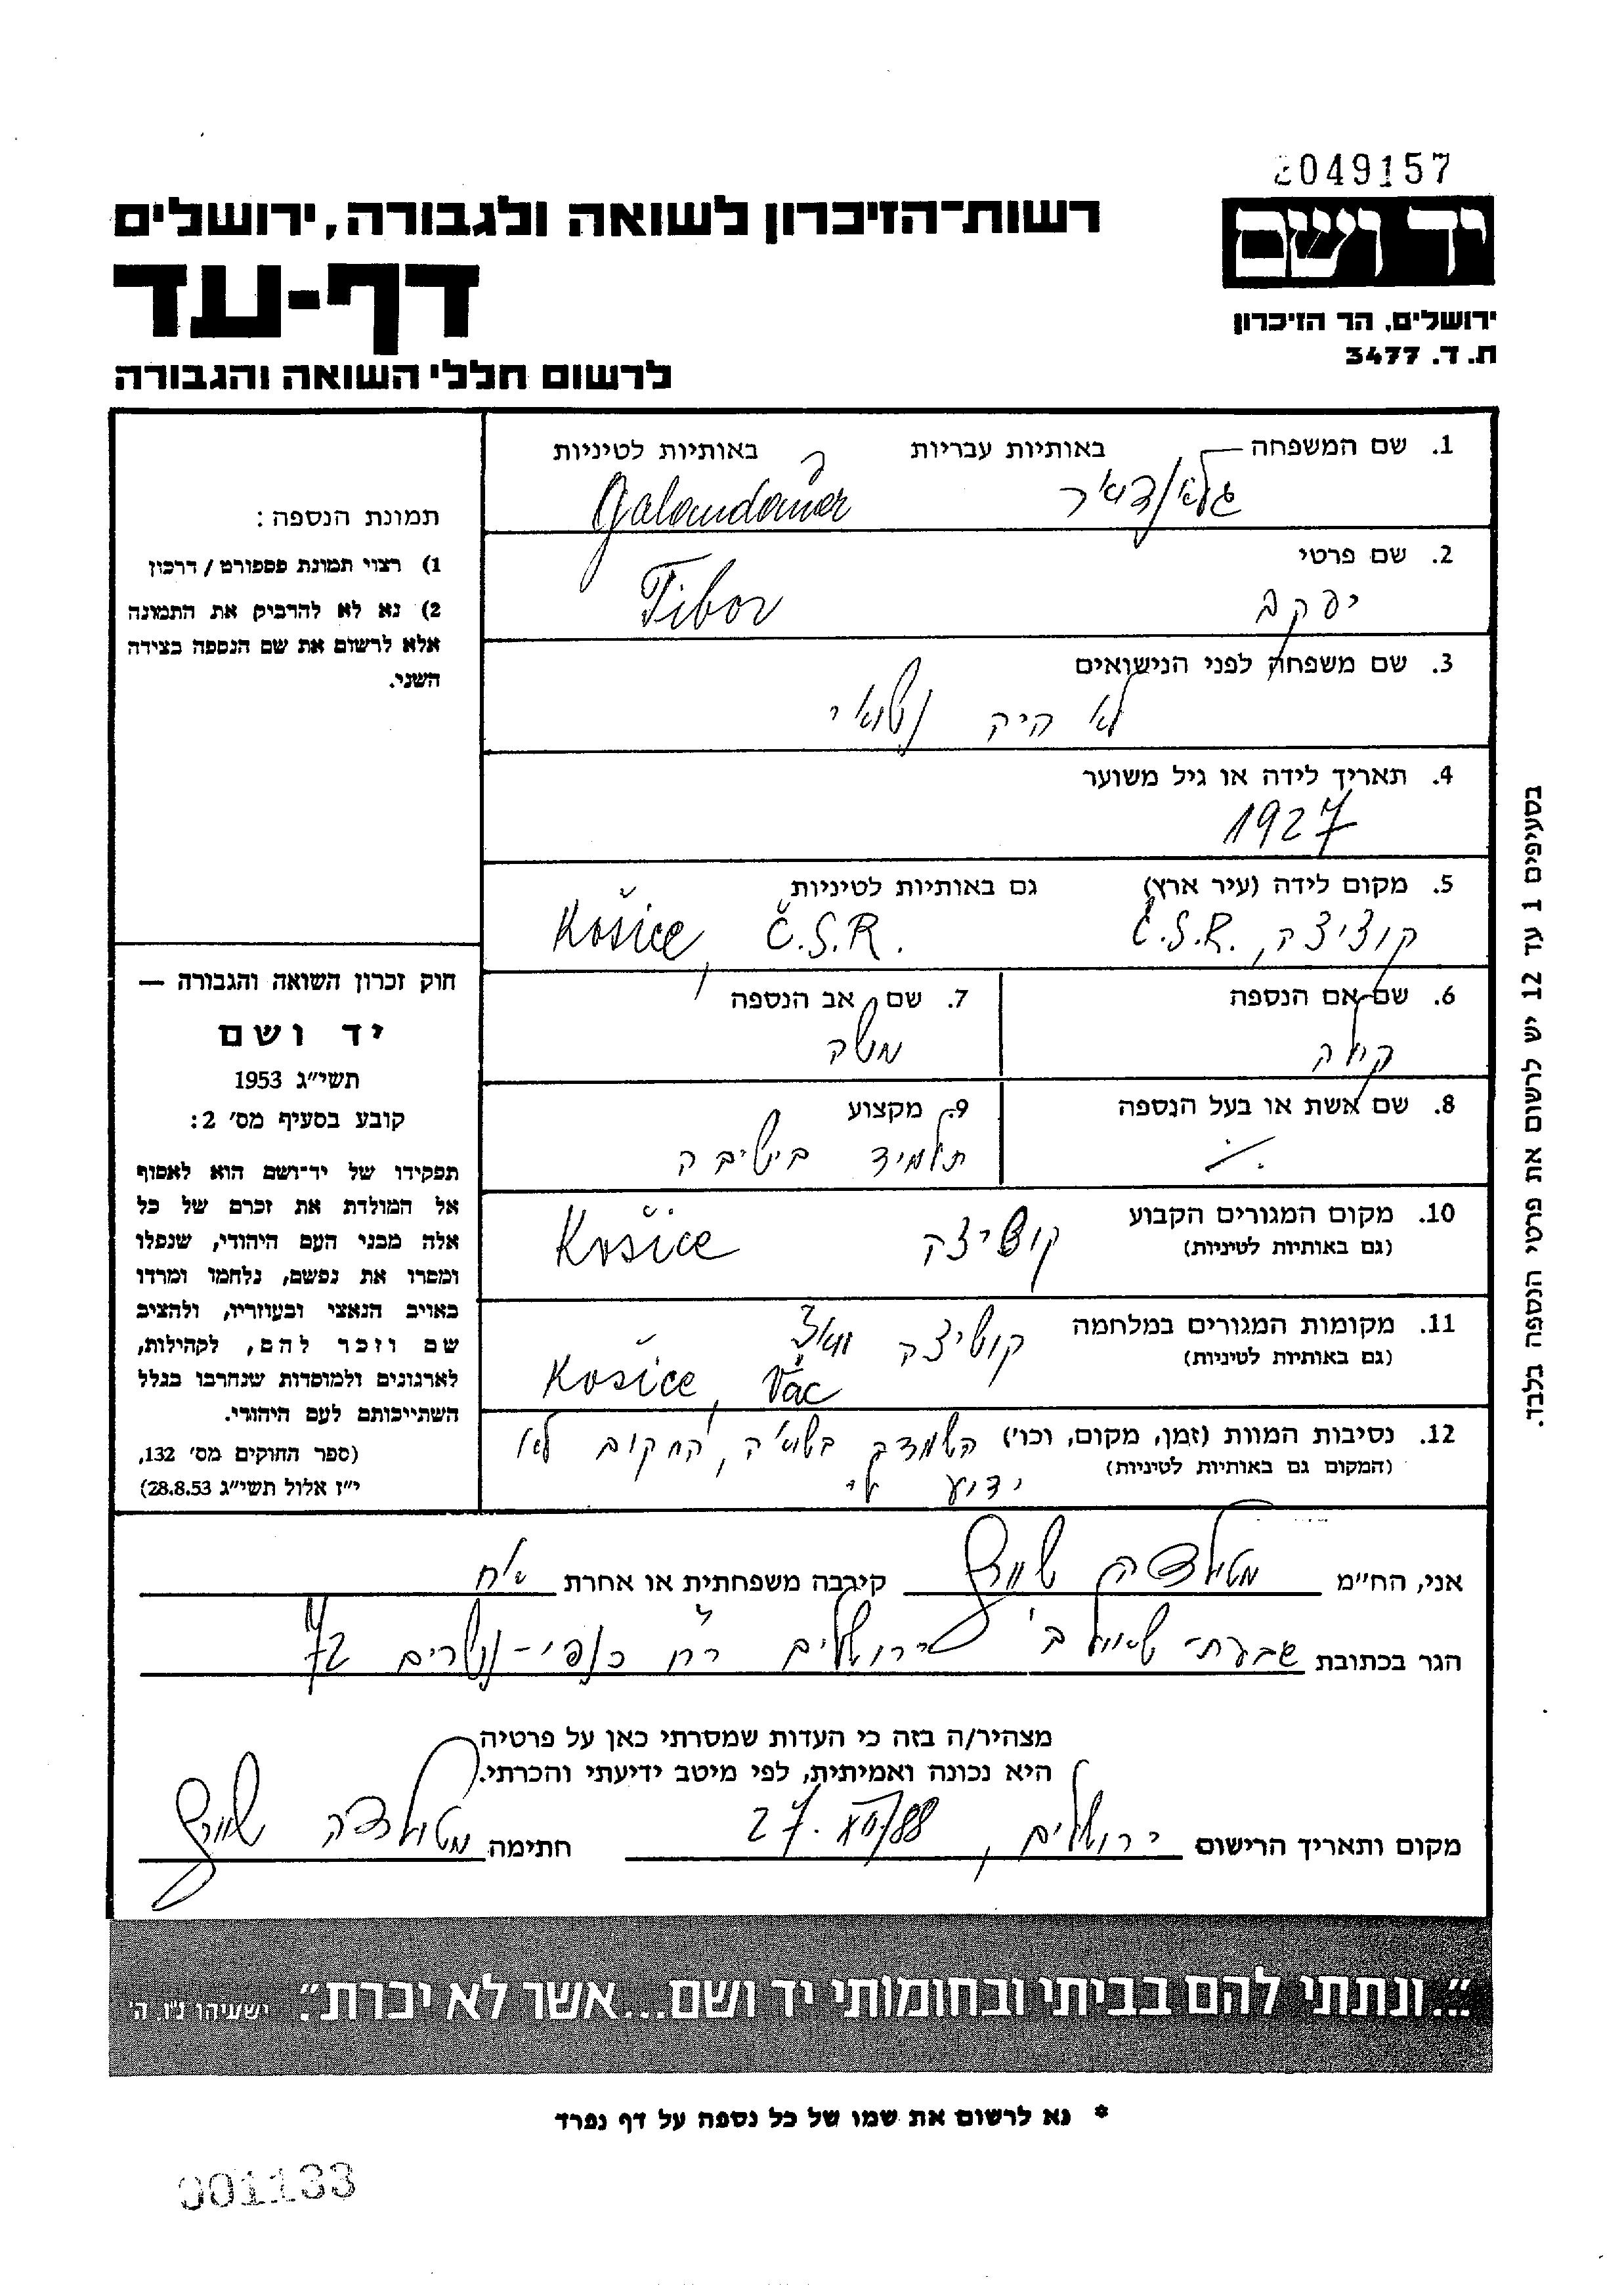 2049157
יד ושם
רשות-הזיכרון לשואה ולגבורה, ירושלים
דף-עד
ירושלים, הר הזיכרון
ת. ד. 3477
לרשום חללי השואה והגבורה
1. שם המשפחה באותיות עבריות באותיות לטיניות
Galandauer
2. שם פרטי
יעקב Tibor
3. שם משפחה לפני הנישואים
לא היה נשואי
4. תאריך לידה או גיל משוער
1927
5. מקום לידה (עיר ארץ) גם באותיות לטיניות
קוציצה, Č.S.R. Košice, Č.S.R.
6. שם אם הנספה
7. שם אב הנספה
משה
8. שם אשת או בעל הנספה
9. מקצוע
תלמיד בישיבה
10. מקום המגורים הקבוע
(גם באותיות לטיניות)
קושיצה Košice
11. מקומות המגורים במלחמה
(גם באותיות לטיניות)
קושיצה וואץ
Košice, Vác
12. נסיבות המוות (זמן, מקום, וכו') בשואה, המקום לא
(המקום גם באותיות לטיניות)
ידוע לי
תמונת הנספה:
1) רצוי תמונת פספורט / דרכון
2) נא לא להדביק את התמונה
אלא לרשום את שם הנספה בצידה
השני.
חוק זכרון השואה והגבורה —
יד ושם
תשי"ג 1953
קובע בסעיף מס' 2:
תפקידו של יד-ושם הוא לאסוף
אל המולדת את זכרם של כל
אלה מבני העם היהודי, שנפלו
ומסרו את נפשם, נלחמו ומרדו
באויב הנאצי ובעוזריו, ולהציב
שם וזכר להם, לקהילות,
לארגונים ולמוסדות שנחרבו בגלל
השתייכותם לעם היהודי.
(ספר החוקים מס' 132,
י"ז אלול תשי"ג 28.8.53)
בסעיפים 1 עד 12 יש לרשום את פרטי הנספה בלבד.
אני, הח"מ שוורץ קירבה משפחתית או אחרת אח
הגר בכתובת ירושלים רח כנפי-נשרים 72
מצהיר/ה בזה כי העדות שמסרתי כאן על פרטיה
היא נכונה ואמיתית, לפי מיטב ידיעתי והכרתי.
מקום ותאריך הרישום ירושלים, 27.XII/88 חתימה שוורץ
"..ונתתי להם בביתי ובחומותי יד ושם...אשר לא יכרת". ישעיהו נ"ו, ה'
* נא לרשום את שמו של כל נספה על דף נפרד
001133